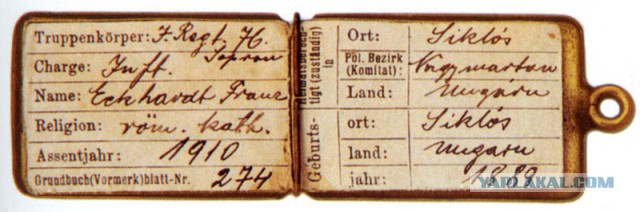 Truppenkörper: I. Regt. 76.
Sopron
Charge: Inft.
Name: Eckhardt Franz
Religion: röm. kath.
Assentjahr: 1910
Grundbuch(Vormerk)blatt-Nr. 274
Heimatsberech-
tigt (zuständig)
in
Ort: Siklós
Pol. Bezirk
(Komitat): Nagymarton
Land: Ungarn
Geburts-
ort: Siklós
land: Ungarn
jahr: 1889
YAPLAKAL.COM